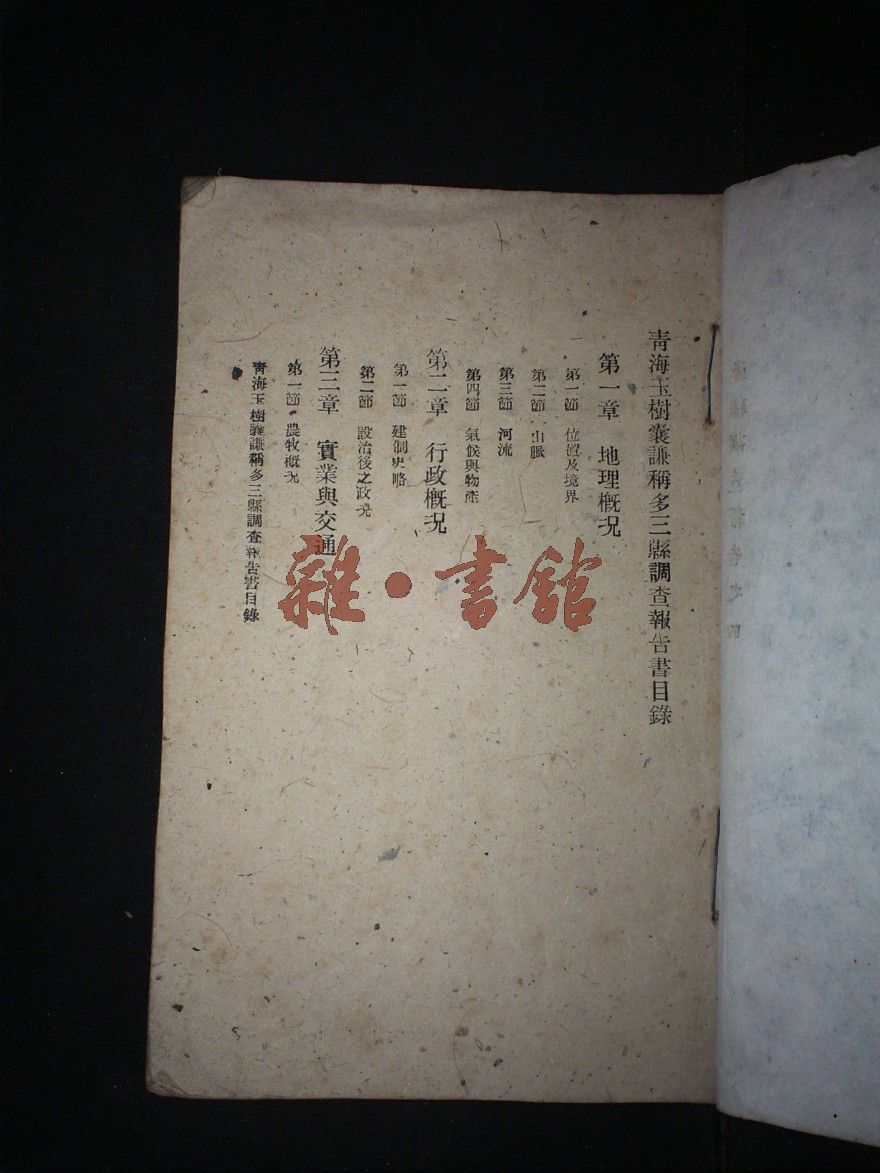 青海玉樹囊謙稱多三縣調查報告書目錄
第一章 地理概况
第一節 位置及境界
第二節 山脈
第三節 河流
第四節 氣候與物產
第二章 行政概况
第一節 建制史略
第二節 設治後之政况
第三章 實業與交通
第一節 農牧概况
青海玉樹囊謙稱多三縣調查報告書目錄
雜·書館